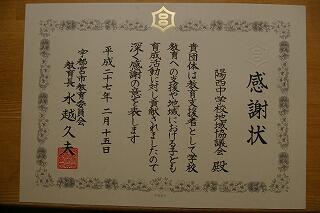 感謝状
陽西中学校地域協議会 殿
貴団体は教育支援者として学校
教育への支援や地域における子ども
育成活動に対し貢献されましたので
深く感謝の意を表します
平成二十七年二月十五日
宇都宮市教育委員会
教育長 水越久夫